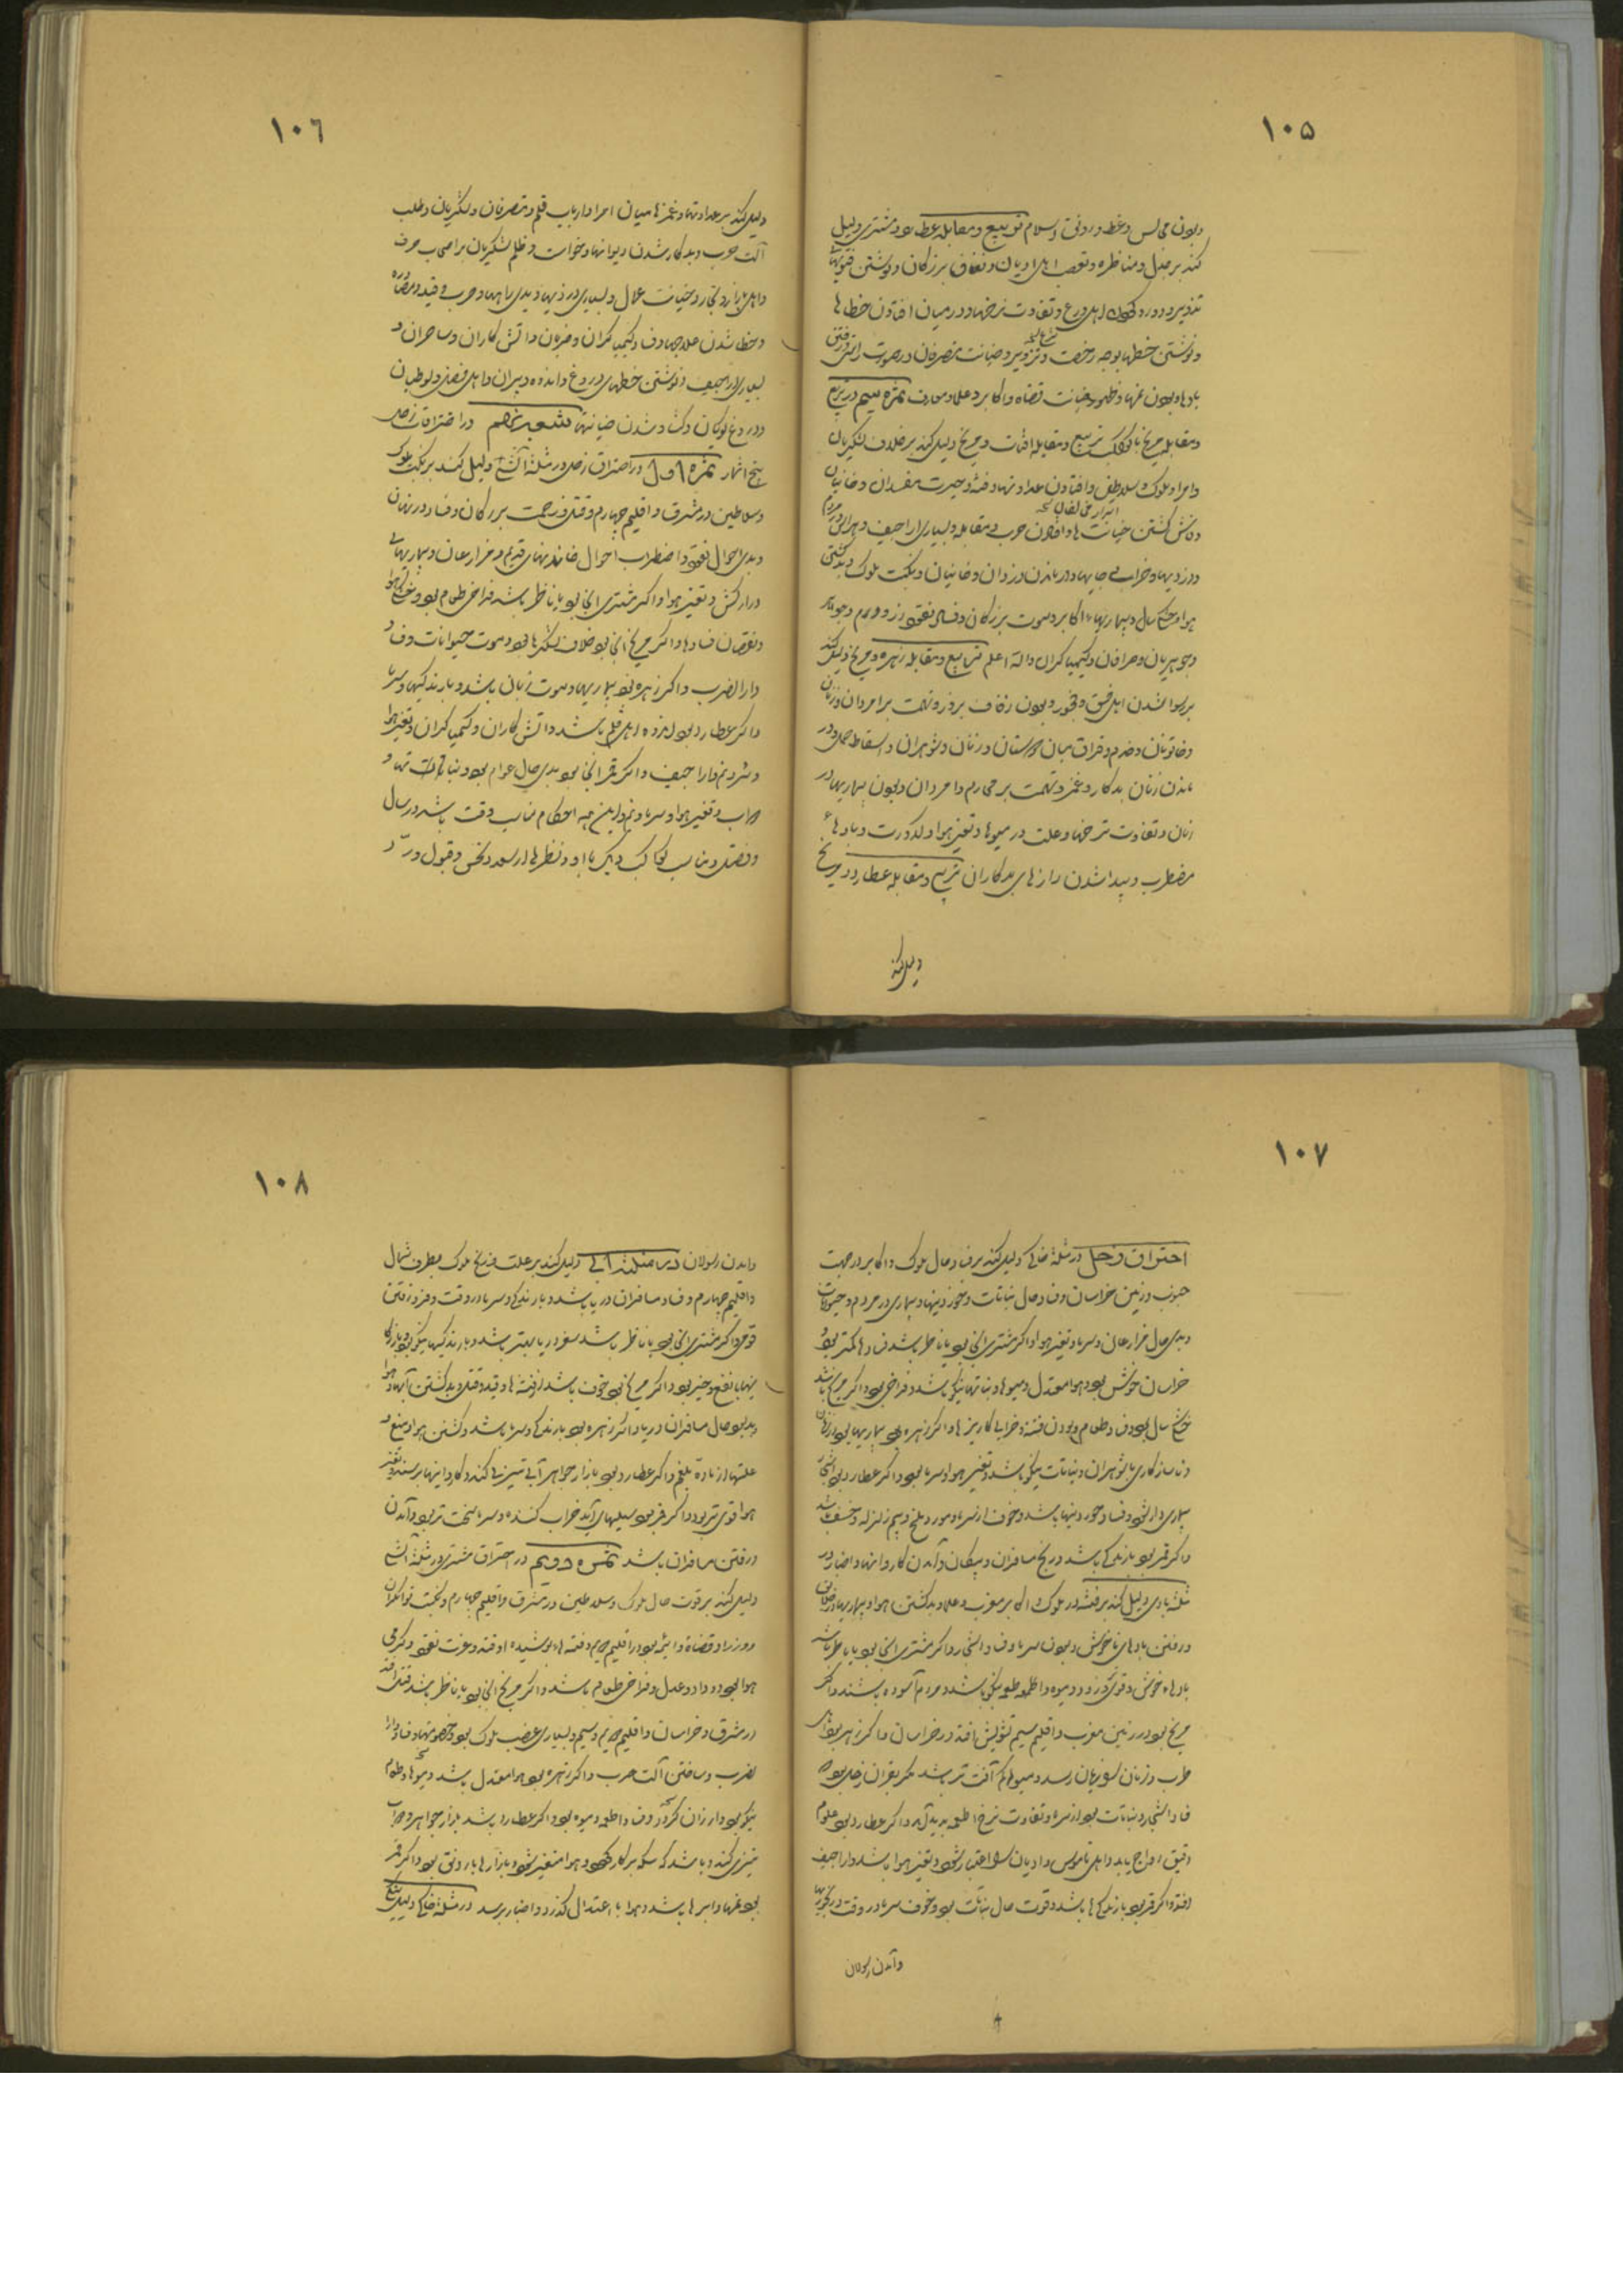 ١٠٥
وبودن مجالس وعظ و رونق اسلام تربیع و مقابله عطارد و مشتری دلیل
کند بر جدل و مناظره و تعصب اهل ادیان و نفاق بزرگان و نوشتن فتویها
تزویر و اهل ورع و تفاوت نرخها و در میان افتادن خطاها
ونوشتن خطها بوجه رخصت و تزویر و خیانت متصرفان در صورت راستی و رفتن
بادها و بودن غمها و ظهور خیانت قضاه و اکابر و علما و معارف ثمره سیم در تربیع
ومقابله مریخ با کواکب تربیع و مقابله آفتاب و مریخ دلیل کند بر خلاف لشکریان
وامرا و ملوک و سلاطین و افتادن عداوتها و فتنه و حیرت مفسدان و خائنان
وفاش گشتن خیانت ها و افتادن حرب و مقابله و بسیاری اراجیف و هراس مردم
ودزدیها و خرابی جایها و درماندن دزدان و خائنان و نکبت ملوک و بد گشتن
هوا و خشکسال و بیماریها اکابر و موت بزرگان و فساد نقود زر و درم و جواهر
وجوهریان و صرافان و کیمیاگران والله اعلم تربیع و مقابله زهره و مریخ دلیل کند
بر رسوا شدن اهل فسق و فجور و بودن زفاف بر زور و تهمت بر امردان و زنان
وخاتونان و خدم و فراق میان دوستان و زنان و شوهران و اسقاط حمل و در
ماندن زنان بدکار و غمز و تهمت بر محارم و امردان و بودن بیماریها در
زنان و تفاوت نرخها و علت در میوها و تغیر هوا و کدورت و بادهاء
مضطرب و پیدا شدن رازهای بدکاران تربیع و مقابله عطارد و مریخ
دلیل کند
١٠٦
دلیل کند بر عداوتها و غمزها میان امرا و ارباب قلم و متصرفان و لشکریان و طلب
آلت حرب و بدکار شدن دیوانها و خواست و ظلم لشکریان بر اصحاب حرف
واهل بازار و تجار و خیانت عمال و بسیاری دزدیها و بدی راهها و حرب و قید و مصادره
وخطا شدن علاجها و فساد کیمیاگران و ضرابان و آتش کاران و ساحران و
بسیاری اراجیف و نوشتن خطهای دروغ و اندوه دبیران و اهل فضل و بوطبان
ودروغ گویان و گشاده شدن خیانتها شعبه نهم در احتراقات زحل
پنج اثمار ثمره اول در احتراق زحل در مثلثه آتشی دلیل کند بر نکبت ملوک
وسلاطین در مشرق و اقلیم چهارم و قتل و زحمت بزرگان و فساد در نهان
وبدی احوال نقود و اضطراب احوال خاندانهای قدیم و مزارعان و بیماریهای
دراز کش و تغیر هوا و اگر مشتری آنجا بود یا ناظر باشد فراخی طعام بود و خوشی هوا
ونقصان فسادها و اگر مریخ آنجا بود خلاف لشکرها بود و موت حیوانات و فساد
دار الضرب و اگر زهره بود بیماریها و موت زنان باشد و بارندگیها و سرما
واگر عطارد بود اندوه اهل قلم باشد و آتش کاران و کیمیاگران و تغیر هوا
وسرد دم و اراجیف و اگر قمر آنجا بود بدی حال عوام بود و نباتات تباه و
خراب و تغیر هوا و سرما و نم و این همه احکام مناسب وقت باشد در سال
وفصل و مناسب کواکب دیگر با او و نظرها از سعد و نحس و قبول و رد
١٠٧
احتراق زحل در مثلثه خاکی دلیل کند بر فساد حال ملوک و اکابر در جهت
جنوب و زمین خراسان و فساد حال نباتات و خوردنیها و بیماری در مردم و حیوانات
وبدی حال مزارعان و سرما و تغیر هوا و اگر مشتری آنجا بود یا ناظر باشد فسادها کمتر بود
خراسان خوش بود و هوا معتدل و میوها و نباتها نیکو باشد و فراخی بود و اگر مریخ باشد
خشک سال بود و فساد طعام و بودن فتنه و خرابی کاریزها و اگر زهره بود بیماریها بود در زنان
وناسازکاری با شوهران و نباتات نیکو باشد و تغیر هوا و سرما بود و اگر عطارد بود اشجار
بیماری دار شود و فساد خوردنیها باشد و خوف از سرما و مور و ملخ و بیم زلزله و خسف باشد
واگر قمر بود بارندگی باشد و رنج مسافران و پیکان و آمدن کاروانها و اخبار در
مثلثه بادی دلیل کند بر فتنه در ملوک و اکابر مغرب و علما و بد گشتن هوا و بیماریها در خلایق
ورفتن بادهای ناخوش و بودن سرما و فساد اشجار و اگر مشتری آنجا بود یا ناظر باشد
بادهاء خوش و قوی گردد و میوه و اطعمه نیکو باشد و مردم آسوده باشند و اگر
مریخ بود در زمین مغرب و اقلیم سیم تشویش افتد در خراسان و اگر زهره بود اهل
طرب و زنان را زیان رسد و میوها کم آفت تر باشد مگر بقران زحل بود
فساد اشجار و نباتات بود از سرما و تفاوت نرخ اطعمه پدید آید و اگر عطارد بود علوم
دقیق رواج یابد و اهل ناموس و ادیان را اعتبار شود و تغیر هوا باشد و اراجیف
افتد و اگر قمر بود بارندگی ها باشد و قوت حال نباتات بود و خوف سرما در وقت و رنجوریها
وآمدن رسولان
١٠٨
وآمدن رسولان در مثلثه آبی دلیل کند بر علت و رنج ملوک بطرف شمال
واقلیم چهارم و فساد مسافران دریا باشد و بارندگی و سرما در وقت و فرو رفتن
قوی و اگر مشتری آنجا بود یا ناظر باشد سفر دریا بهتر باشد و بارندگیها نیکو بود و بازرگا
نیها با نفع و خیر بود و اگر مریخ بود خوف باشد از فتنه ها و قید و قتل و بد گشتن آبها و هوا
وبد بود حال مسافران دریا و اگر زهره بود بارندگی و سرما باشد و گشتن هوا و منع و
علتها از ماده بلغم و اگر عطارد بود بازار جواهر آبی تیزی کند و کاروانها برسند و تغیر
هوا قوی تر بود و اگر قمر بود سیلهای آید خراب کننده و سرما سخت تر بود و آمدن
ورفتن مسافران باشد ثمره دویم در احتراق مشتری در مثلثه آتشی
دلیل کند بر قوت حال ملوک و سلاطین در مشرق و اقلیم چهارم و نکبت توانگران
ووزرا و قضاة و ائمه بود در اقلیم چهارم و فتنه هاء پوشیده افتد و عزت نقود و گرمی
هوا بود و داد و عدل و فراخی طعام باشد و اگر مریخ آنجا بود یا ناظر باشد قتل افتد
در مشرق و خراسان و اقلیم چهارم و سیم و بسیاری غضب ملوک بود و خصومتها و فساد دار
لضرب و ساختن آلت حرب و اگر زهره بود هوا معتدل باشد و میوها و طعام
نیکو بود و ارزان گردد و فساد اطعمه و میوه بود و اگر عطارد باشد بازار جواهر و صراف
تیزی کند و باشد که سکه بر کار شود و هوا متغیر شود و بازارها با رونق بود و اگر قمر
بود غمها و ابرها باشد و هوا با اعتدال گذرد و اخبار برسد در مثلثه خاکی دلیل کند